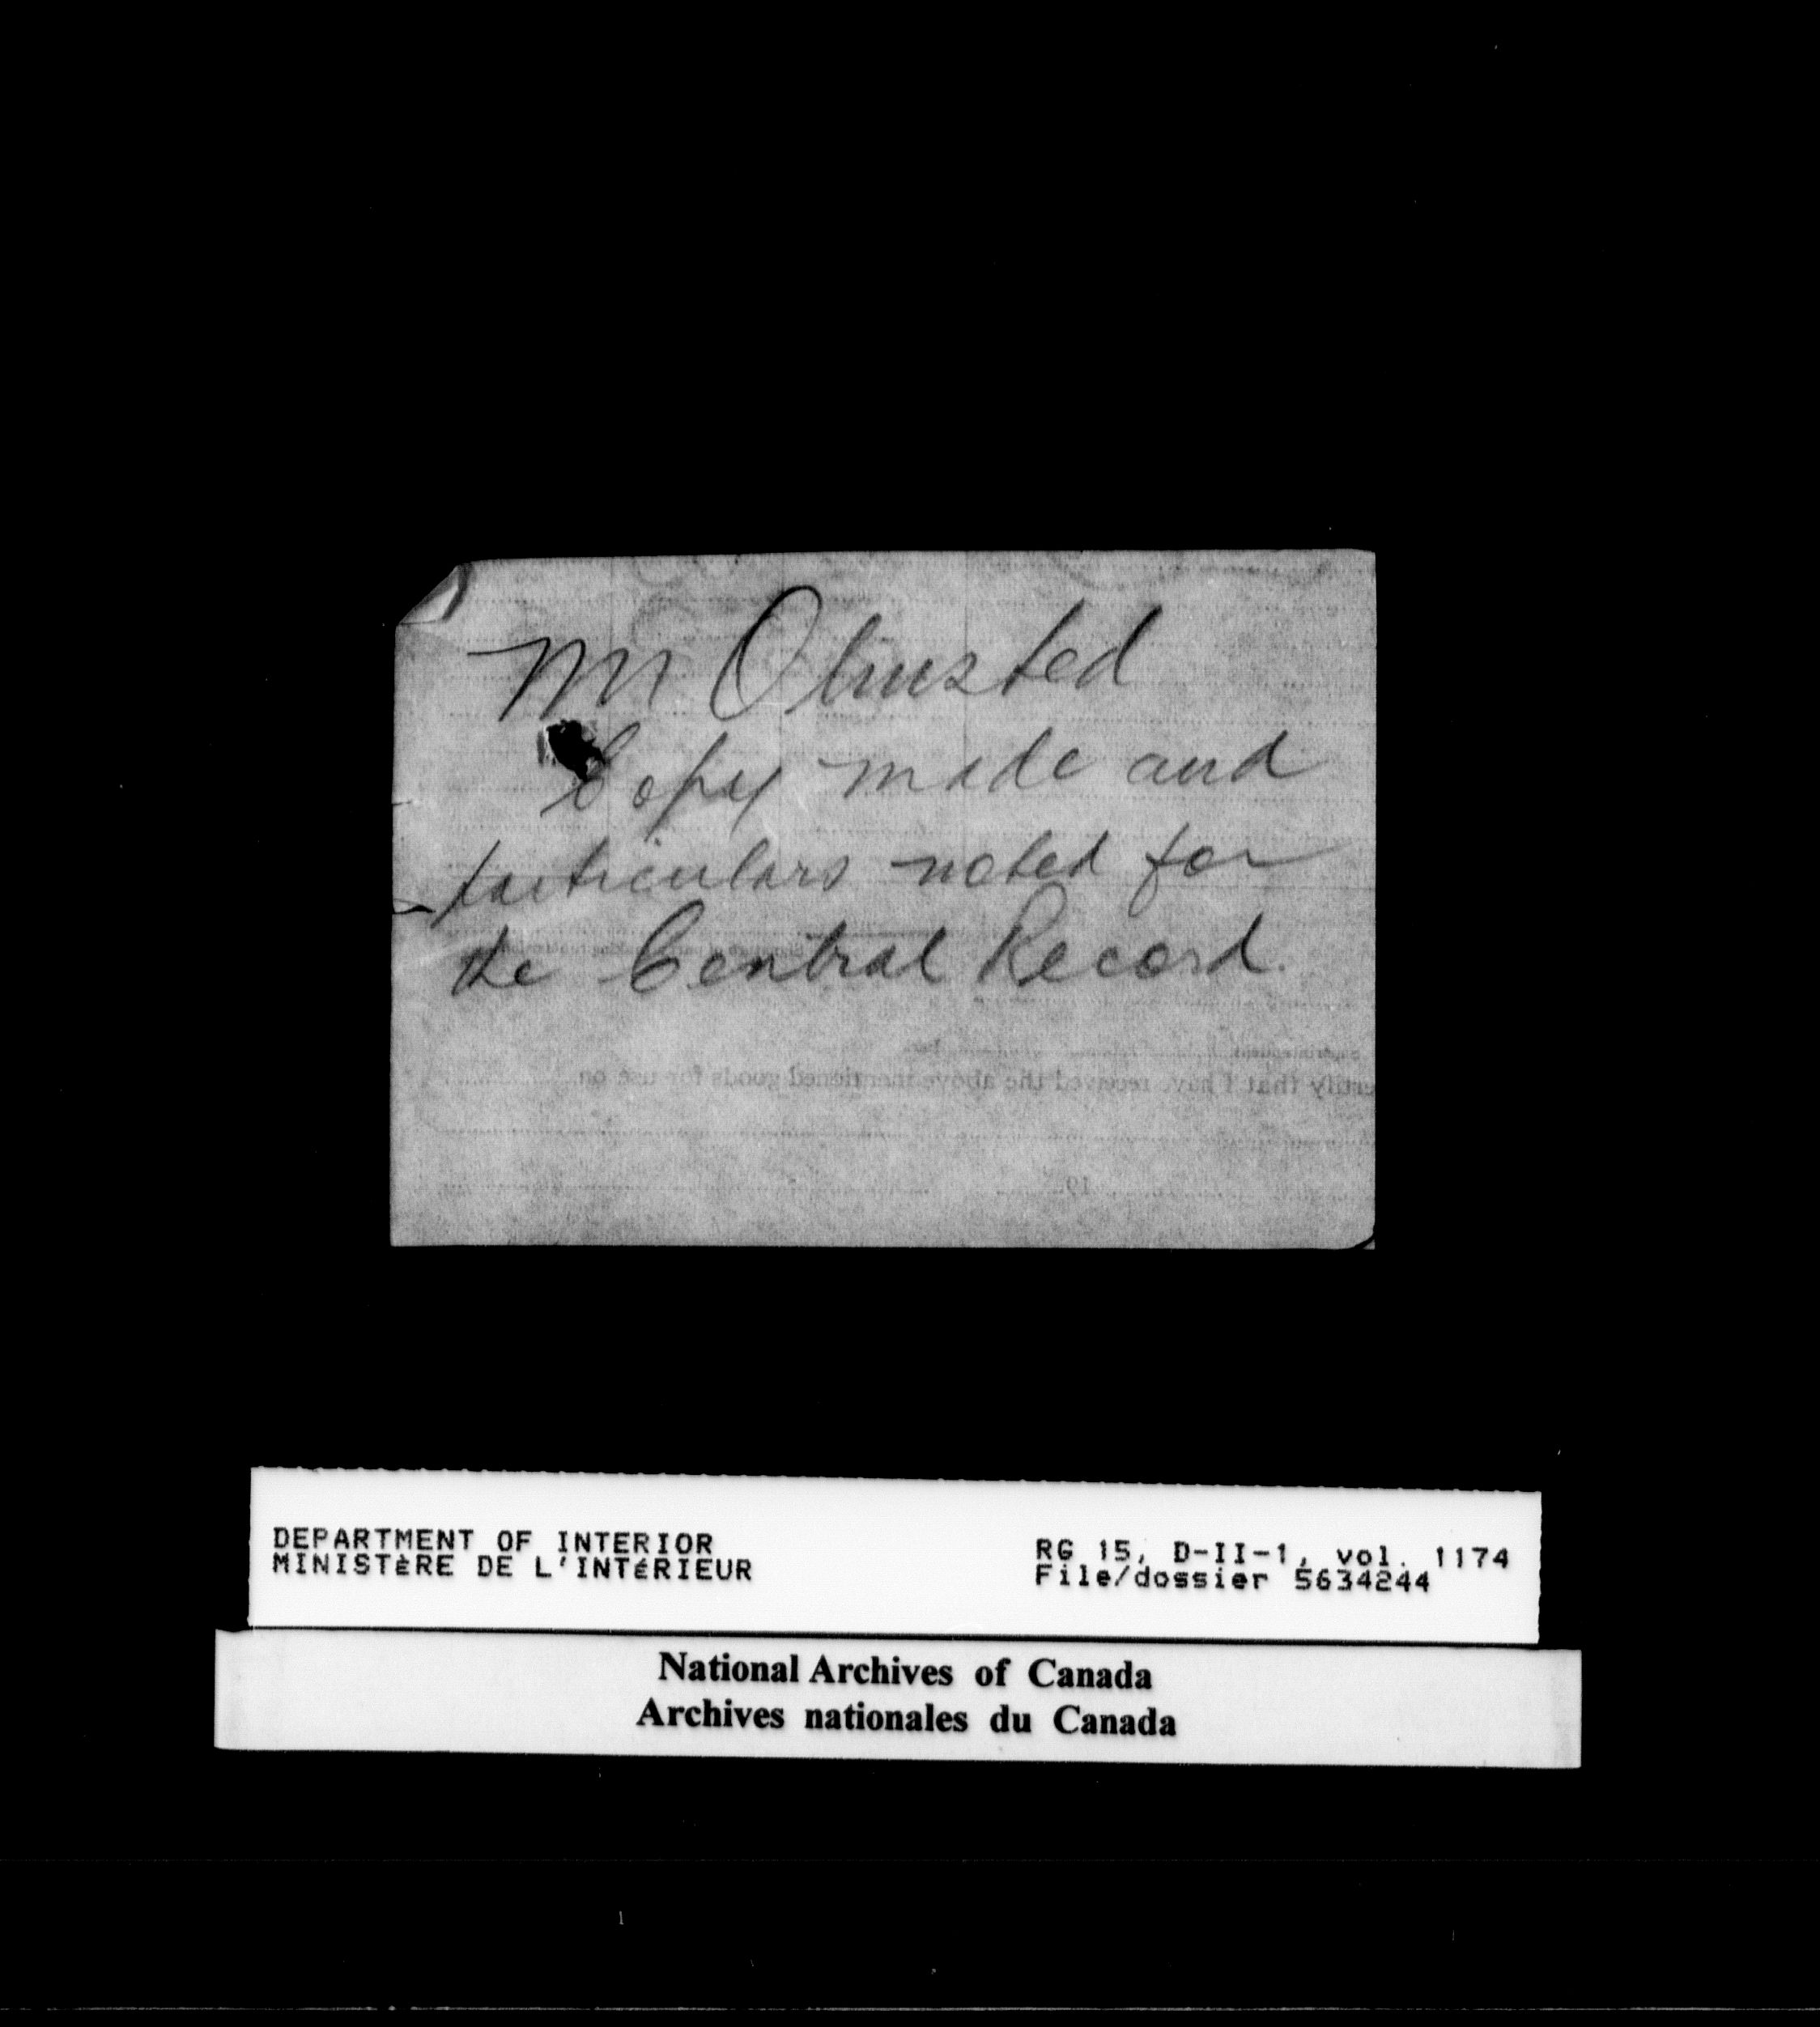 Mr Olmsted
Copy made and
particulars noted for
the Central Record.
Superintendent
ertify that I have received the above mentioned goods for use on
19
DEPARTMENT OF INTERIOR
MINISTÈRE DE L'INTÉRIEUR
RG 15, D-II-1, vol. 1174
File/dossier 5634244
National Archives of Canada
Archives nationales du Canada